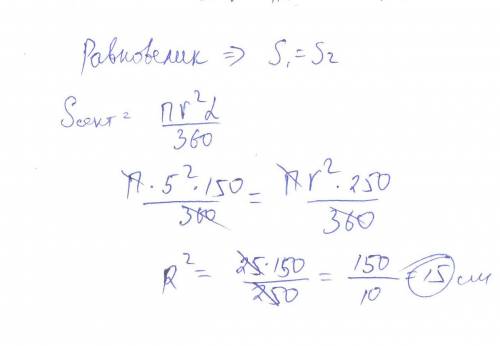 Равновелик => S₁ = S₂
Sсект = πr²α/360
π·5²·150/360 = πr²·250/360
R² = 25·150/250 = 150/10 = 15 см